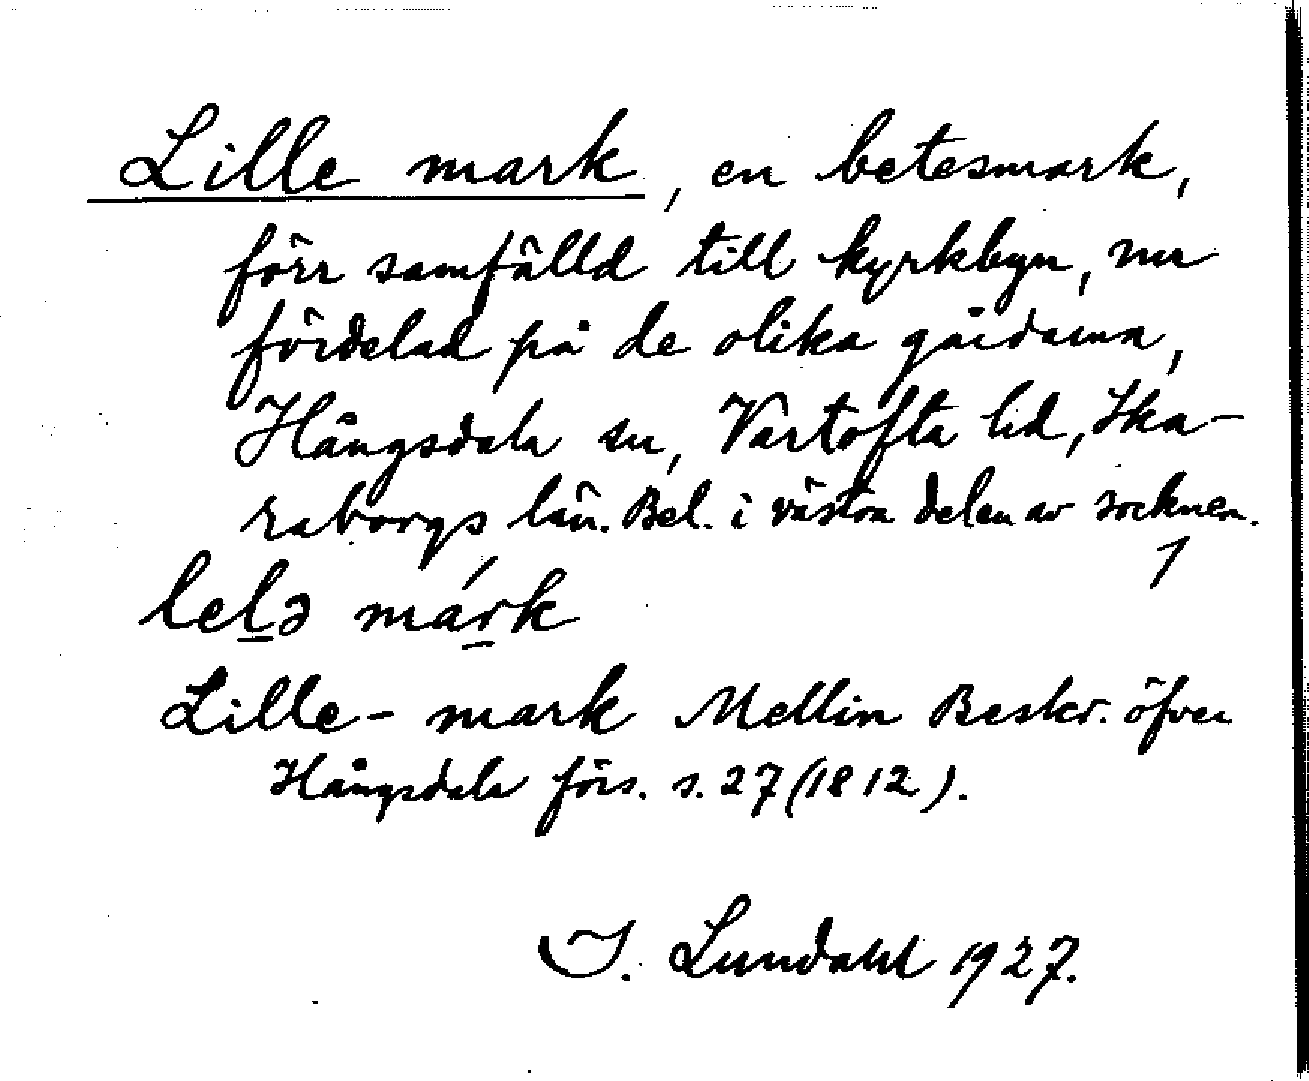 Lille mark, en betesmark,
förr samfälld till kyrkbyn, nu
fördelad på de olika gårdarna,
Hångsdala sn, Vartofta hd, Ska-
raborgs län. Bel. i västra delen av socknen.
lelə márk
Lille-mark Mellin Beskr. öfver
Hångsdala förs. s. 27 (1812).
I. Lundahl 1927.